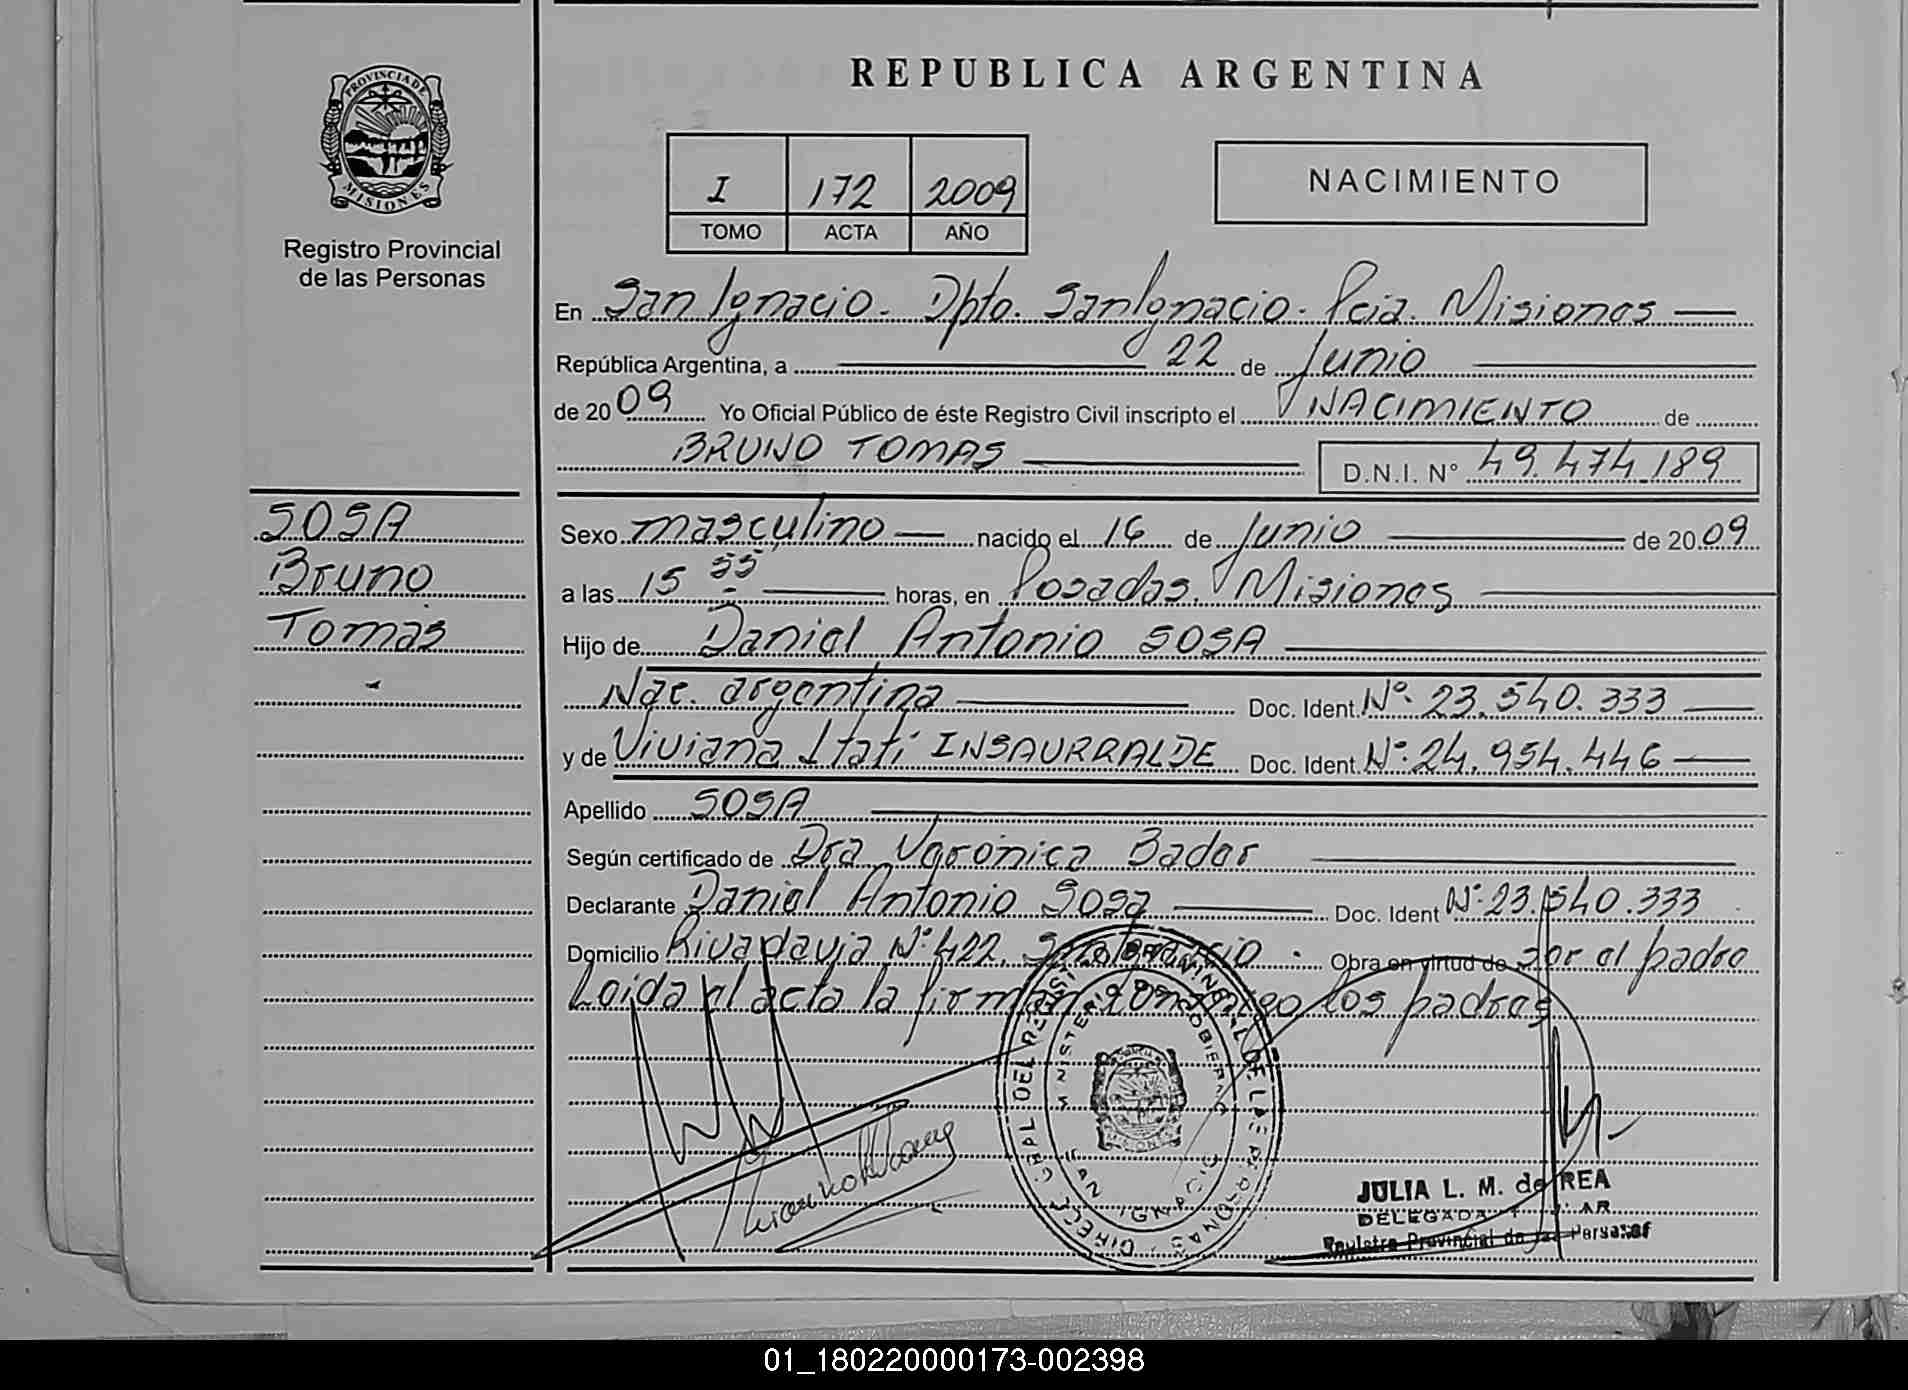 REPUBLICA ARGENTINA
PROVINCIA DE MISIONES
Registro Provincial
de las Personas
I 172 2009
TOMO ACTA AÑO
NACIMIENTO
En San Ignacio - Dpto. San Ignacio - Pcia. Misiones
República Argentina, a 22 de Junio
de 2009 Yo Oficial Público de éste Registro Civil inscripto el NACIMIENTO de
BRUNO TOMAS D.N.I. N° 49.474.189
SOSA
Bruno
Tomás
Sexo masculino nacido el 16 de Junio de 2009
a las 15 55 horas, en Posadas. Misiones
Hijo de Daniel Antonio SOSA
Nac. argentina Doc. Ident. Nº 23.540.333
y de Viviana Itatí INSAURRALDE Doc. Ident. Nº 24.954.446
Apellido SOSA
Según certificado de Dra Verónica Bader
Declarante Daniel Antonio Sosa Doc. Ident Nº 23.540.333
Domicilio Rivadavia Nº 422. San Ignacio. Obra en virtud de ser el padre
Leida el acta la firman conmigo los padres
DIRECC. GRAL DEL REGISTRO PROVINCIAL DE LAS PERSONAS
MINISTERIO DE GOBIERNO
SAN IGNACIO
JULIA L. M. de REA
DELEGADA
Registro Provincial de las Personas
01_180220000173-002398